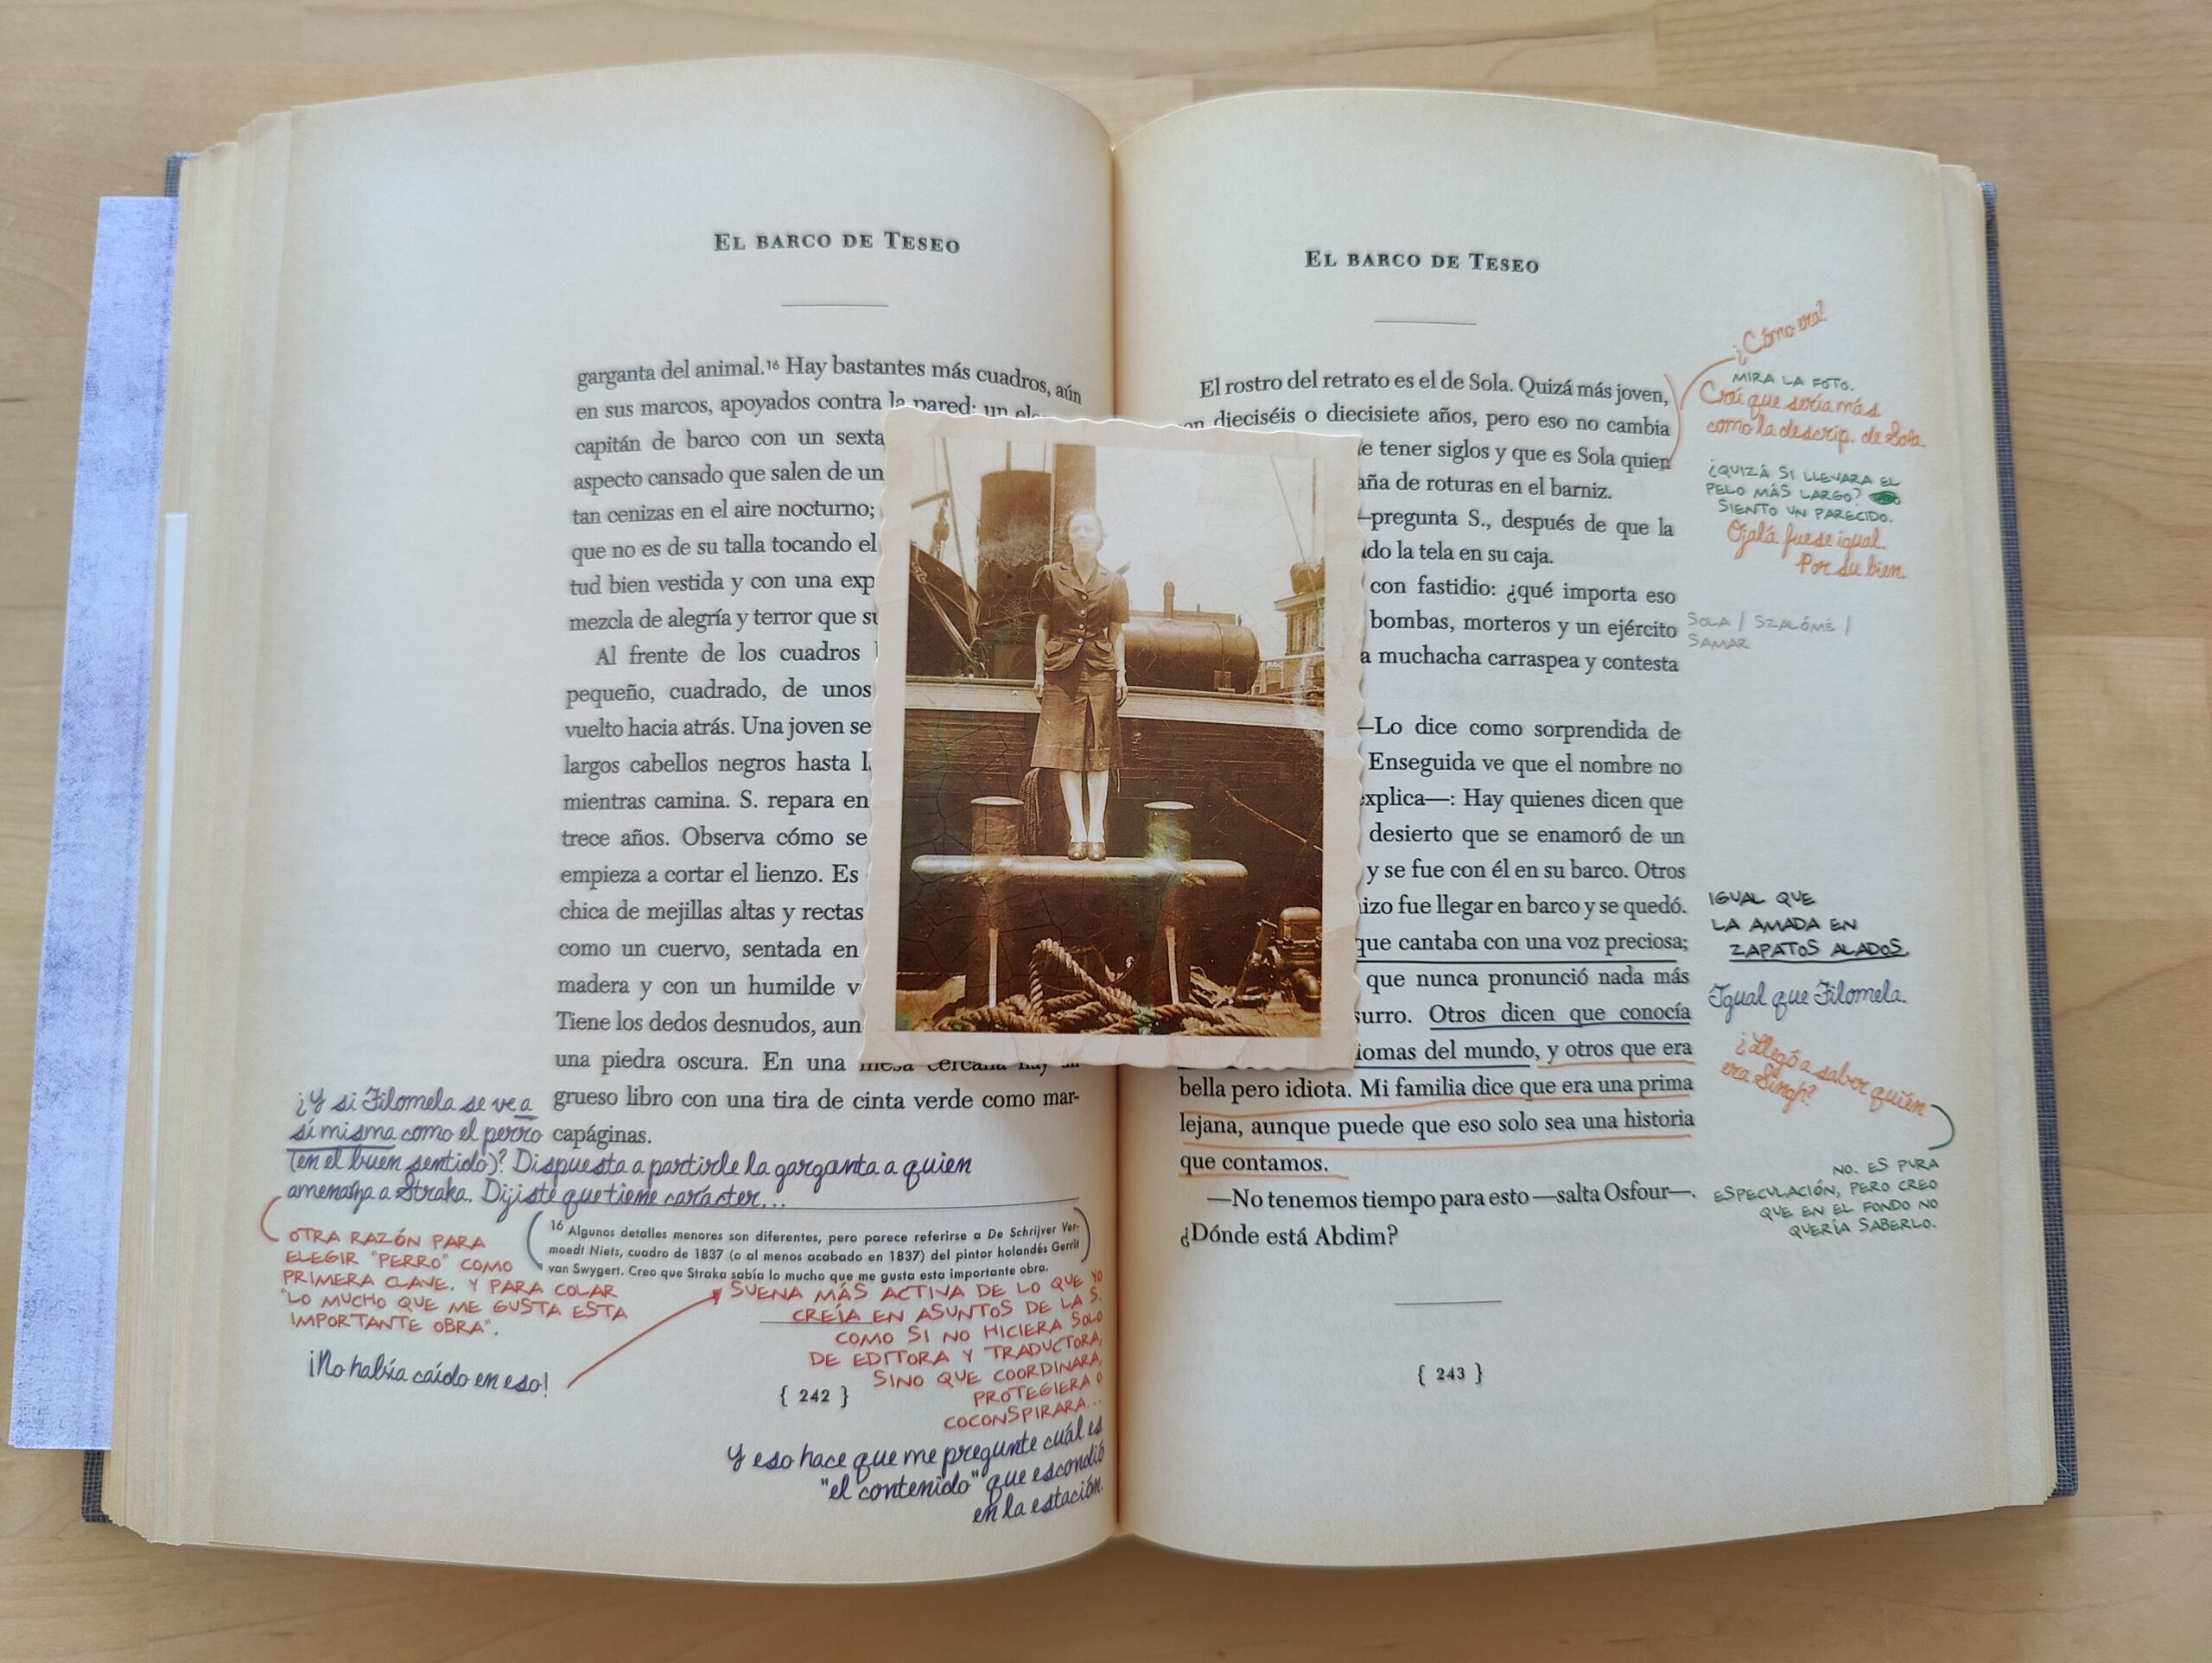 EL BARCO DE TESEO
garganta del animal.¹⁶ Hay bastantes más cuadros, aún
en sus marcos, apoyados contra la pared: un
capitán de barco con un
aspecto cansado que salen de un
tan cenizas en el aire nocturno;
que no es de su talla tocando el
tud bien vestida y con una
mezcla de alegría y terror que
Al frente de los cuadros
pequeño, cuadrado, de unos
vuelto hacia atrás. Una joven se
largos cabellos negros hasta
mientras camina. S. repara en
trece años. Observa cómo se
empieza a cortar el lienzo. Es
chica de mejillas altas y rectas
como un cuervo, sentada en
madera y con un humilde
Tiene los dedos desnudos,
una piedra oscura. En una mesa cercana hay un
grueso libro con una tira de cinta verde como mar-
capáginas.
¿Y si Filomela se ve a
sí misma como el perro
(en el buen sentido)? Dispuesta a partirle la garganta a quien
amenaza a Straka. Dijiste que tiene carácter...
OTRA RAZÓN PARA
ELEGIR "PERRO" COMO
PRIMERA CLAVE. Y PARA COLAR
"LO MUCHO QUE ME GUSTA ESTA
IMPORTANTE OBRA".
¡No había caído en eso!
16 Algunos detalles menores son diferentes, pero parece referirse a De Schrijver Ver-
moedt Niets, cuadro de 1837 (o al menos acabado en 1837) del pintor holandés Gerrit
van Swygert. Creo que Straka sabía lo mucho que me gusta esta importante obra.
SUENA MÁS ACTIVA DE LO QUE YO
CREÍA EN ASUNTOS DE LA S.
COMO SI NO HICIERA SOLO
DE EDITORA Y TRADUCTORA,
SINO QUE COORDINARA,
PROTEGIERA O
COCONSPIRARA...
{ 242 }
Y eso hace que me pregunte cuál es
"el contenido" que escondió
en la estación.
EL BARCO DE TESEO
El rostro del retrato es el de Sola. Quizá más joven,
dieciséis o diecisiete años, pero eso no cambia
tener siglos y que es Sola quien
de roturas en el barniz.
—pregunta S., después de que la
la tela en su caja.
con fastidio: ¿qué importa eso
bombas, morteros y un ejército
muchacha carraspea y contesta
—Lo dice como sorprendida de
Enseguida ve que el nombre no
explica—: Hay quienes dicen que
desierto que se enamoró de un
y se fue con él en su barco. Otros
fue llegar en barco y se quedó.
que cantaba con una voz preciosa;
que nunca pronunció nada más
Otros dicen que conocía
del mundo, y otros que era
bella pero idiota. Mi familia dice que era una prima
lejana, aunque puede que eso solo sea una historia
que contamos.
—No tenemos tiempo para esto —salta Osfour—.
¿Dónde está Abdim?
{ 243 }
¿Cómo era?
MIRA LA FOTO.
Creí que sería más
como la descrip. de Sola.
¿QUIZÁ SI LLEVARA EL
PELO MÁS LARGO?
SIENTO UN PARECIDO.
Ojalá fuese igual.
Por su bien.
SOLA | SZALÓMÉ |
SAMAR
IGUAL QUE
LA AMADA EN
ZAPATOS ALADOS.
Igual que Filomela.
¿Llegó a saber quién
era Singh?
NO. ES PURA
ESPECULACIÓN, PERO CREO
QUE EN EL FONDO NO
QUERÍA SABERLO.